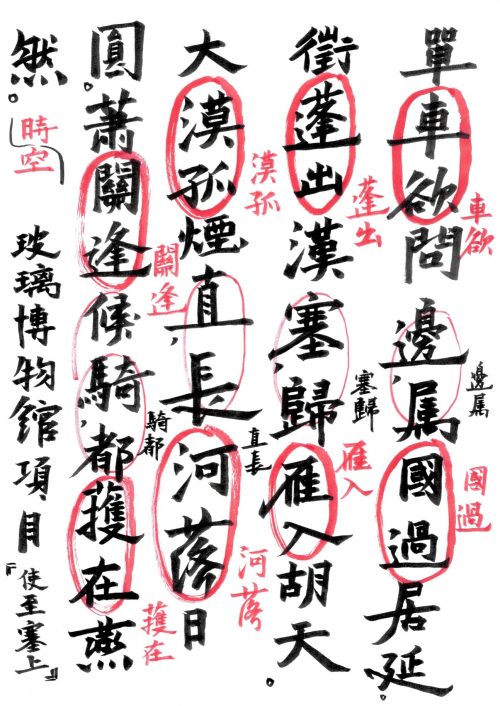 單車欲問邊,属國過居延。
車欲
邊属
國過
徵蓬出漢塞,歸雁入胡天。
蓬出
塞歸
雁入
大漠孤煙直,長河落日
漠孤
直長
河落
圓。蕭關逢候騎,都擭在燕
關逢
騎都
擭在
然。
時空
玻璃博物館項目『使至塞上』